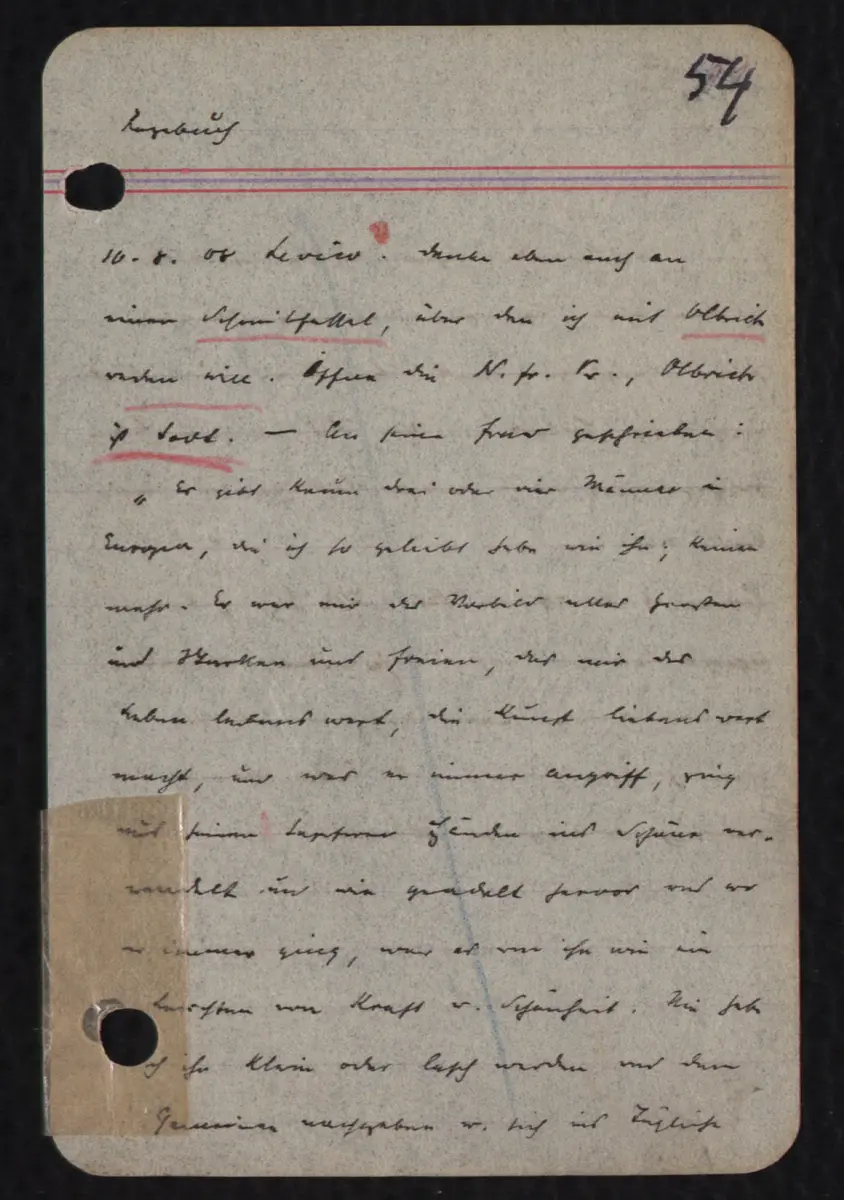 54
Tagebuch
10. 8. 08 Levico. Denke eben auch an
einen Schnitzsessel, über den ich mit Olbrich
reden will. Öffne die N. fr. Pr., Olbrich
ist todt. — An seine Frau geschrieben:
„Es gibt kaum drei oder vier Männer in
Europa, die ich so geliebt habe wie ihn; keinen
mehr. Er war mir das Vorbild alles Grossen
und Starken und Freien, das mir das
Leben lebenswert, die Kunst liebenswert
macht, und was er immer angriff, ging
aus seinen tapferen Händen ins Schöne ver-
wandelt und wie geadelt hervor und wo
er immer ging, war es um ihn wie ein
Leuchten von Kraft u. Schönheit. Nie habe
ich ihn klein oder lasch werden und dem
Gemeinen nachgeben u. sich ins Tägliche